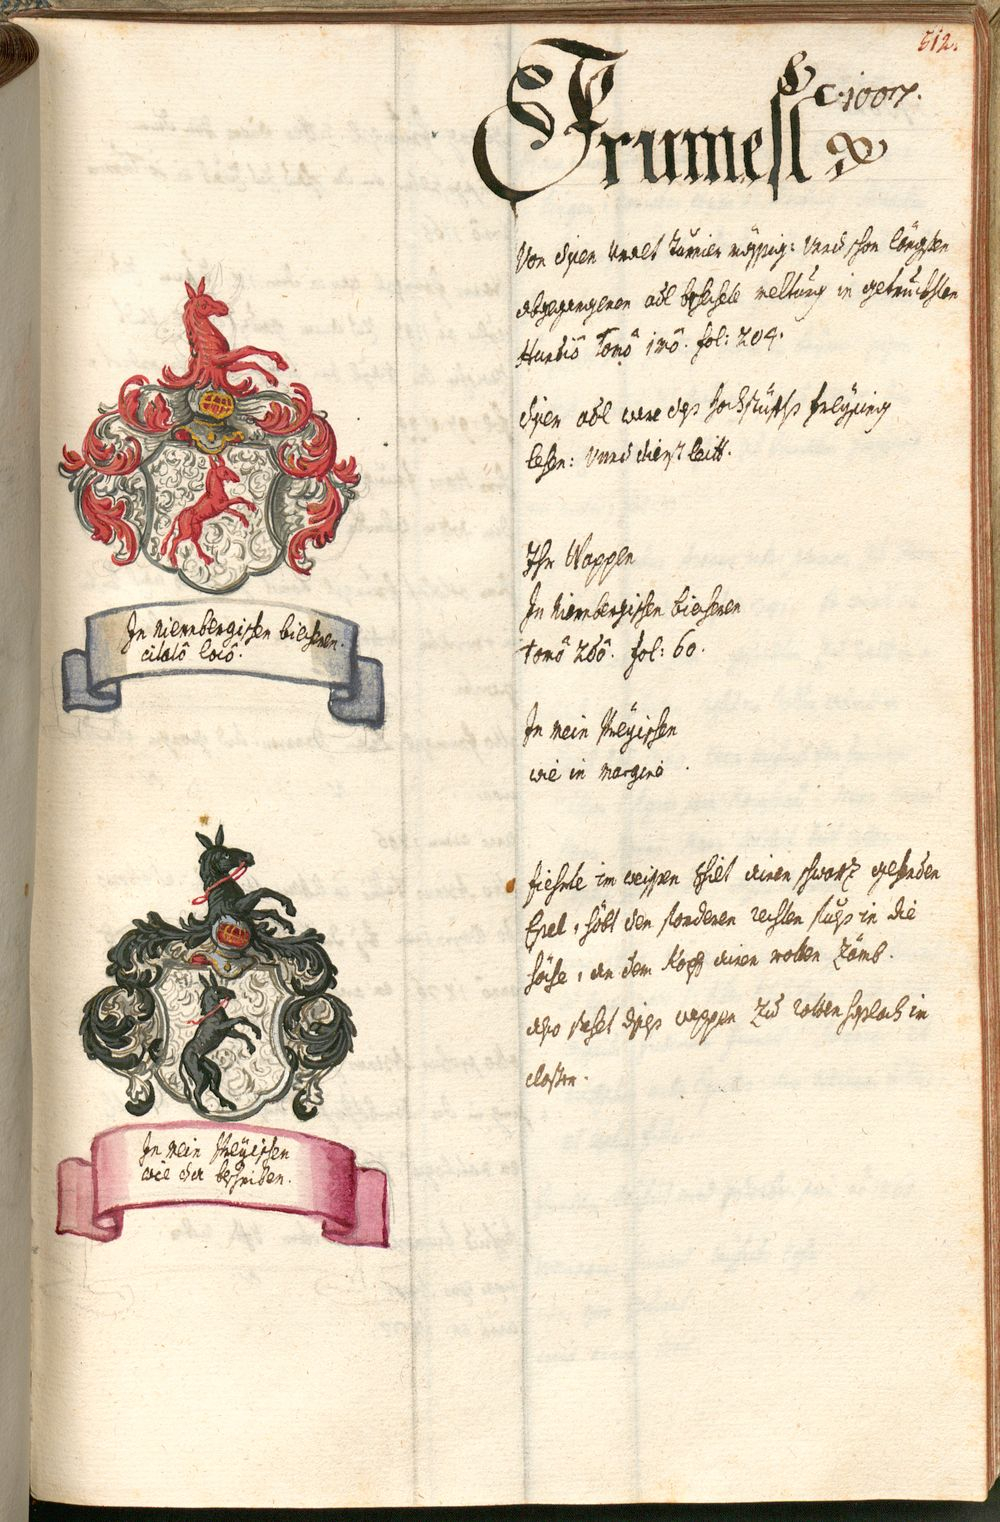 512.
Frumesl
C.1007.
Von disen Uralt Turnier mässig: Unnd schon längsten
abgegangenen adl beschicht meltung in getruckhten
Hundio Tomo imo. fol: 204.
diser adl ware dess hochstüffts Freÿsing
lehen: Unnd dienst leith.
Ihr Wappen
In Niernbergischen biecheren
tomo 2do. fol: 60.
In mein
wie in margine.
fiehrte im weissen Schilt einen schwarz gehenden
Esel, höbt den forderen rechten fuess in die
höche, an dem Kopf einen rotten Zämb.
also stehet dises wappen zu in
closter.
In Niernbergischen biecheren.
citato loco.
In mein
wie da beschriben.